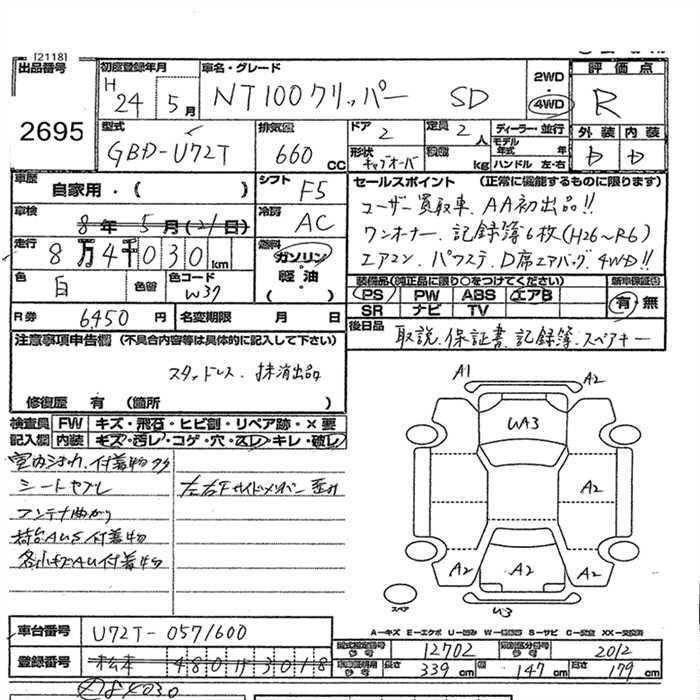 [2118]
出品番号 初度登録年月 車名・グレード 評価点
2695
H 24 5月 NT100クリッパー SD 2WD 4WD R
型式 排気量 ドア 定員 ディーラー・並行 外装 内装
GBD-U72T 660 CC 2 2人 モデル年式 年 D D
形状 キャブオーバ 積載 kg ハンドル 左・右
車歴 自家用・( ) シフト F5
セールスポイント (正常に機能するものに限ります)
車検 8年 5月 (21日) 冷房 AC
ユーザー買取車 AA初出品!!
走行 8万4千030km 燃料 ガソリン 軽油 ( )
ワンオーナー 記録簿6枚(H26~R6)
エアコン パワステ D席エアバッグ 4WD!!
色 白 色替 色コード W37
装備品(純正品に限り○をつけてください) 新車保証書
PS PW ABS エアB 有・無
SR ナビ TV
R券 6450円 名変期限 月 日
後日品 取説、保証書、記録簿、スペアキー
注意事項申告欄 (不具合内容等は具体的に記入して下さい)
スタッドレス、抹消出品
修復歴 有 (箇所 )
検査員 FW キズ・飛石・ヒビ割・リペア跡・×要
記入欄 内装 キズ・汚レ・コゲ・穴・スレ・キレ・破レ
シートヤブレ
アンテナ曲がり
A1 A2
UA3
A2 A2
A2 A2 A2
U3
スペア
車台番号 U72T-0571600
A-キズ E-エクボ U-凹み S-サビ C-腐食 XX-交換済
型式指定番号 12702 類別区分番号 2012
登録番号 松本 480 サ 3018
長さ 339cm 幅 147cm 高さ 179cm
84030